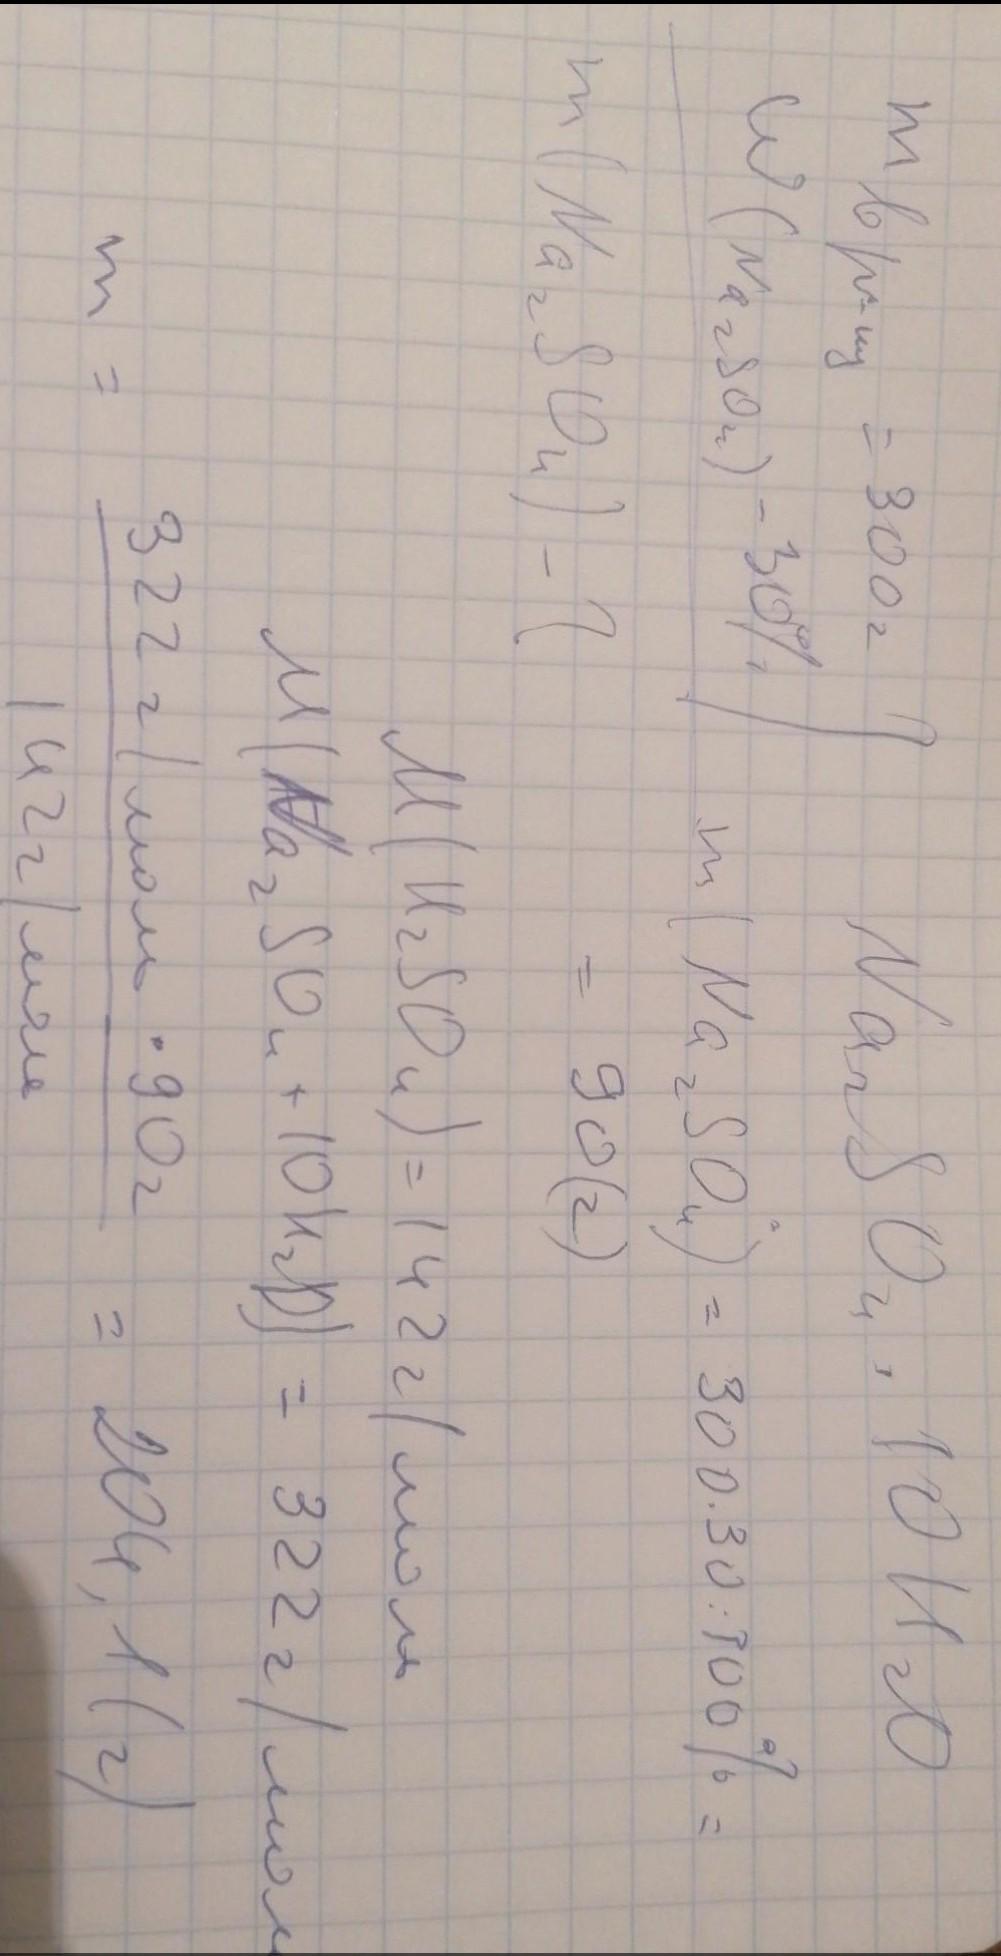 m в р-му = 300г
W(Na₂SO₄) - 30%
m(Na₂SO₄) - ?
Na₂SO₄ · 10H₂O
m(Na₂SO₄) = 300·30:100% =
= 90(г)
M(H₂SO₄) = 142г/моль
M(Na₂SO₄ + 10H₂O) = 322г/мол
m = 322г/моль · 90г
142г/моль
= 204,1(г)